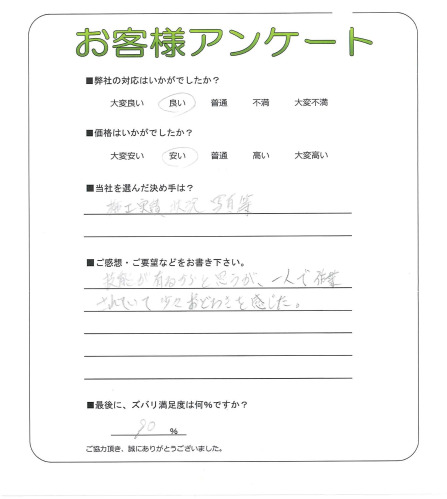 お客様アンケート
■弊社の対応はいかがでしたか?
大変良い 良い 普通 不満 大変不満
■価格はいかがでしたか?
大変安い 安い 普通 高い 大変高い
■当社を選んだ決め手は?
施工実績 状況 写真等
■ご感想・ご要望などをお書き下さい。
技能が有るからと思うが、一人で作業
されていて少々 を感じた。
■最後に、ズバリ満足度は何%ですか?
90 %
ご協力頂き、誠にありがとうございました。